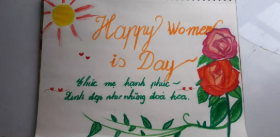 Happy Women
is Day
Chúc mẹ hạnh phúc
Xinh đẹp như những đoá hoa.